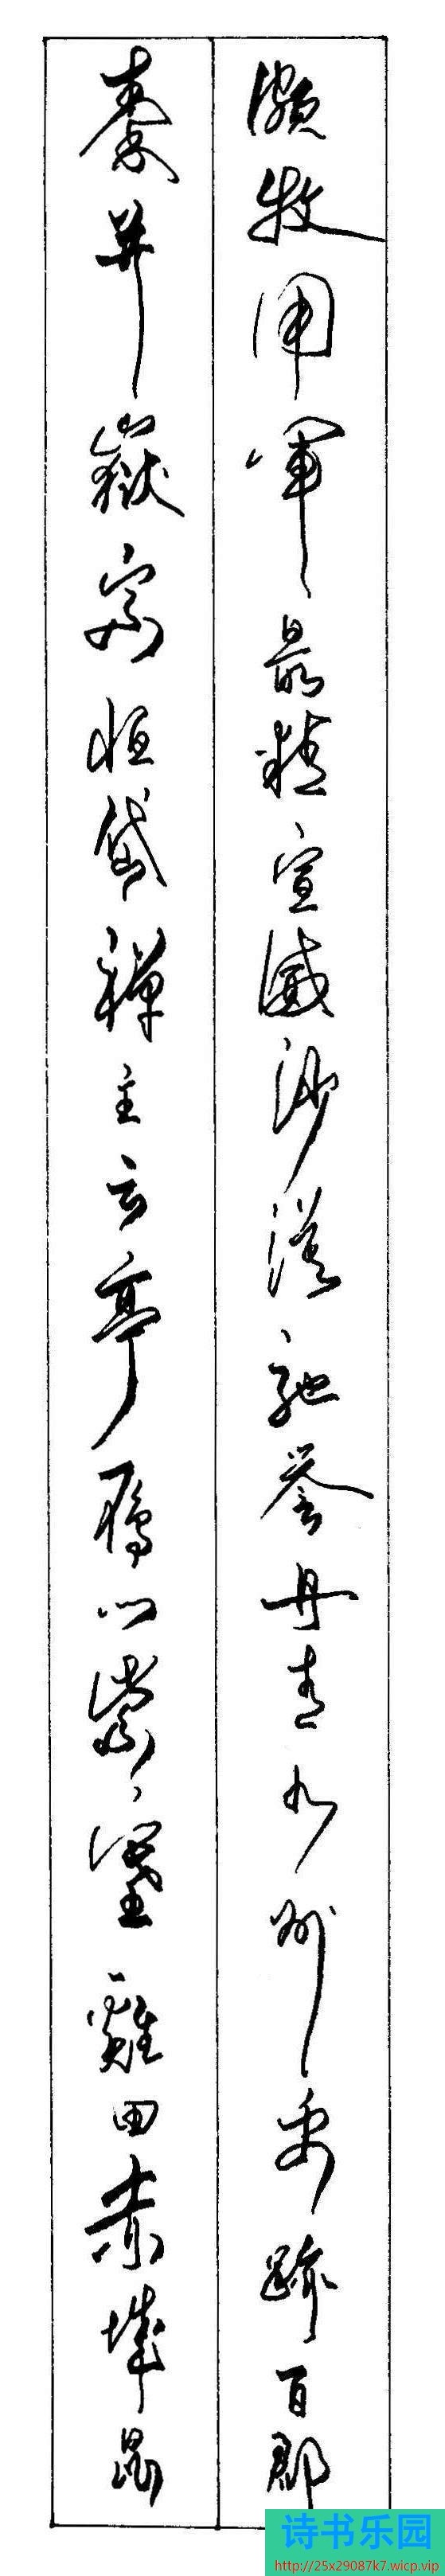 颇牧用军最精宣威沙漠驰誉丹青九州禹迹百郡
秦并嶽宗恒岱禅主云亭雁门紫塞鸡田赤城昆
诗书乐园
http://25x29087k7.wicp.vip